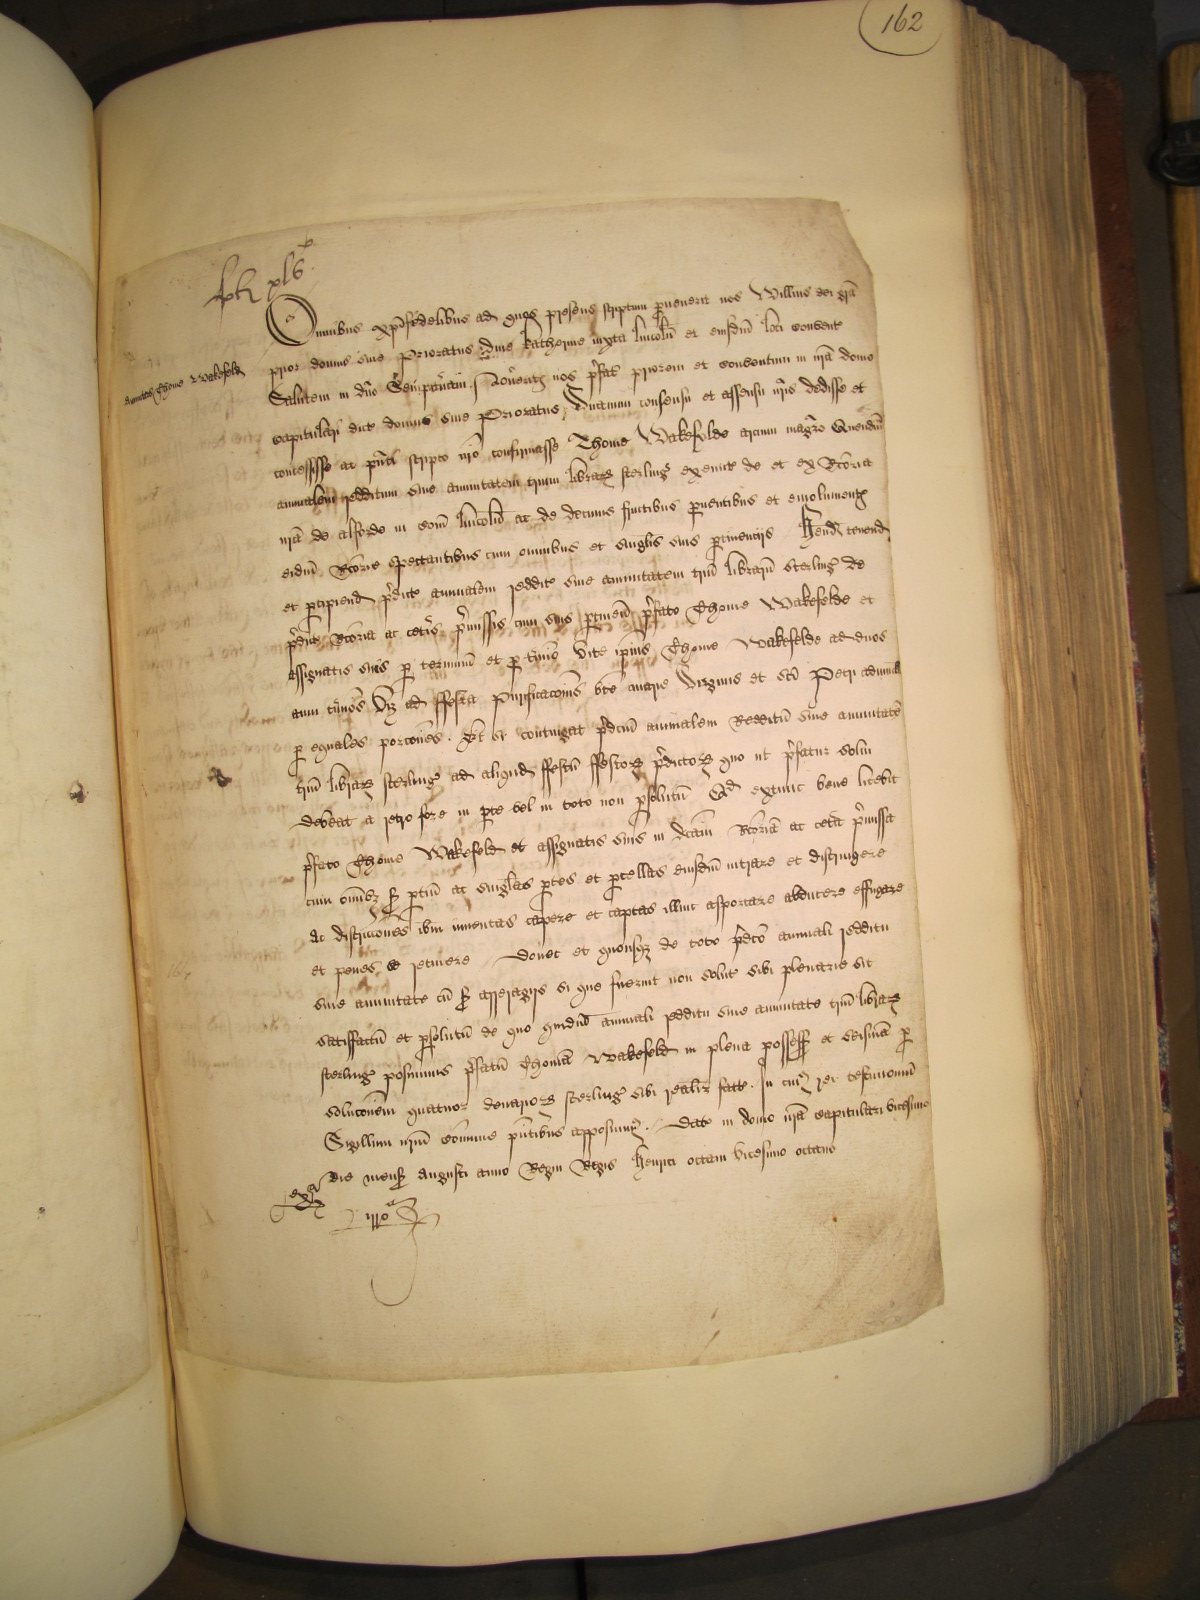 162
Annuitas Thome Wakefeld
Omnibus xpifidelibus ad quos presens scriptum pervenerit nos Willms dei gra
prior domus sive Prioratus Katherine iuxta lincoln et eiusdm loci convent
Salutem in dno Sempiternam Noveritis nos prefat priorem et conventum in nra domo
capitulari dict domus sive Prioratus unanimi consensu et assensu nris dedisse et
concessisse ac pnti scripto nro confirmasse Thome Wakefelde quendam
annualem redditum sive annuitatem trium librarum sterling exeunt de et ex Rectoria
nra de alforde in com lincoln ac de decimis fructibus pventibus et emolument
eidm Rectorie spectantibus cum omnibus et singlis suis ptinencijs Hend tenend
et pcipiend pdict annualem reddit sive annuitatem trium librarum sterling de
pdict Rectoria ac ceteris premissis cum suis ptinen prefato Thome Wakefelde et
assignatis suis p terminum et p vite ipius Thome Wakefelde ad duos
anni tminos viz ad ffesta Purificaconis bte marie virginis et sci Petri advincla
p equales porcones Et si contingat pdcm annualem Redditum sive annuitate
trium librarum sterling ad aliquod ffestum ffestorum pdictorum quo ut prefatur solui
debeat a retro fore in pte vel in toto non psolutum Qd extunc bene licebit
prefato Thome Wakefeld et assignatis suis in dcam Rectoria ac cetera premissa
cum ac singlas ptes et pcellas eiusdm intrare et distringere
ac districcones ibm inventas capere et captas illinc asportare abducere effugare
et penes se retinere donec et quousqz de toto pdco annuali redditu
sive annuitate arreragijs si que fuerint non solut sibi plenarie sit
satisfactum et psolutum de quo quidm annuali redditu sive annuitate trium librarum
sterling posuimus prefatum Thomam Wakefeld in plena possess et seisina p
solucionem quatuor denariorum sterling sibi realiter fact In cuius rei testimonium
Sigillum nrum comune pntibus apposuimus Dat in domo nra capitulari vicesimo
die mens augusti anno Regni Regis Henrici octavi vicesimo octavo